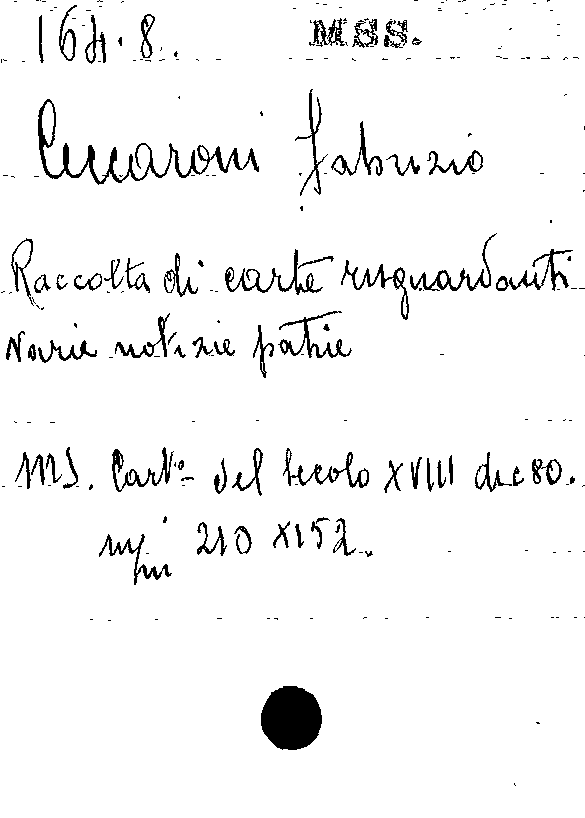 164.8. MSS.
Ceccaroni Fabrizio
Raccolta di carte risguardanti
varie notizie patrie
MS. Cart.º del secolo XVIII di c 80.
m/m 210 X152.